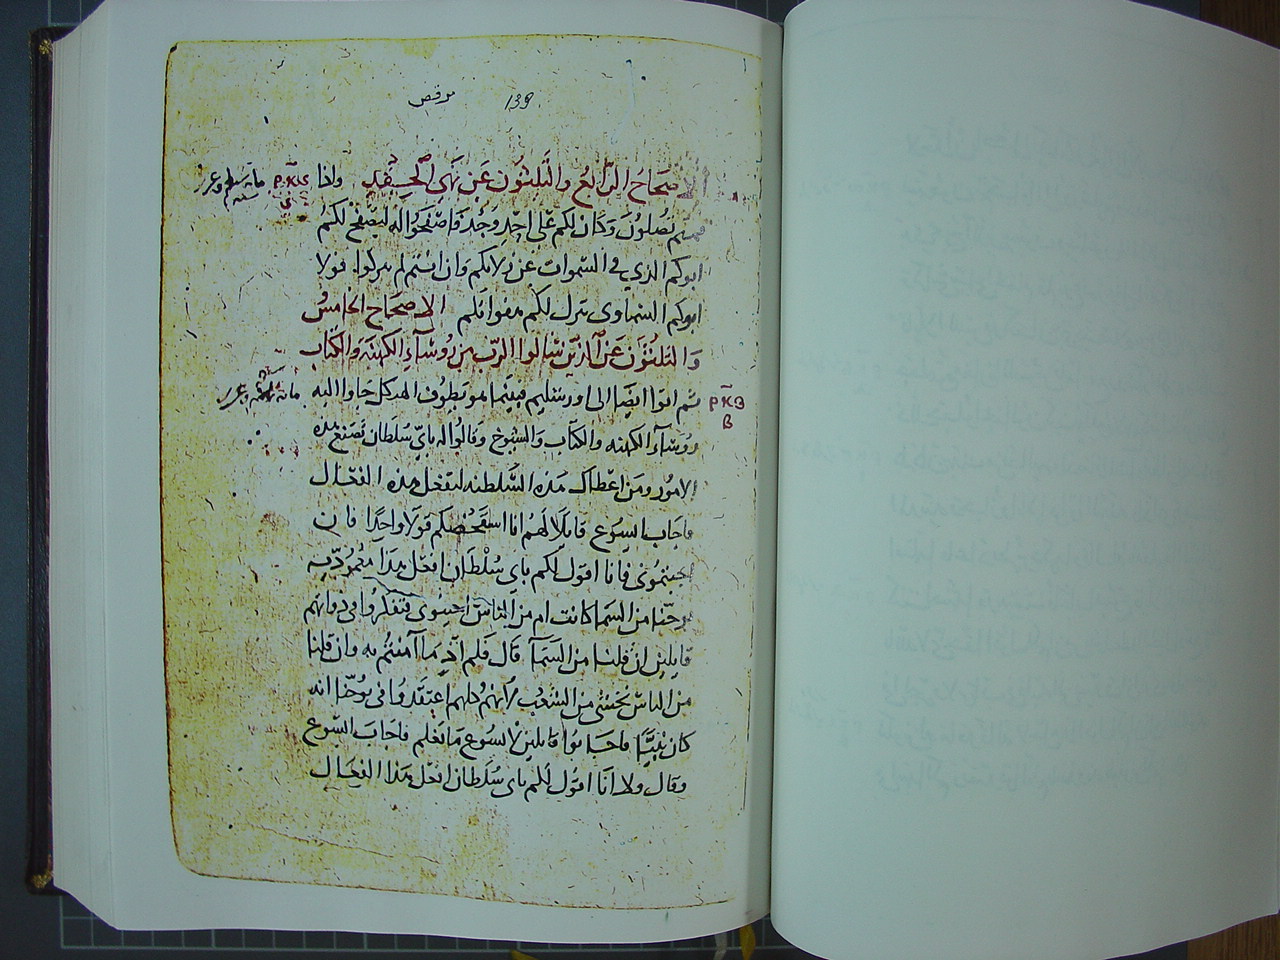 مرقص 139
الاصحاح الرابع والثلثون عن نهي الحقد واذا
قمتم تصلون وكان لكم على احد وجد فاصفحوا له ليصفح لكم
ابوكم الذي في السموات عن زلاتكم وان انتم لم تتركوا فولا
ابوكم السماوى يترك لكم هفواتكم الاصحاح الخامس
والثلثون عن الذين سالوا الرب من روساء الكهنة والكتاب
ρκβ
β
ثم اتوا ايضا الى اورشليم فبينما هو يطوف الهيكل جاوا اليه
روساء الكهنه والكتاب والشيوخ وقالوا له باي سلطان تصنع هذه
الامور ومن اعطاك هذه السلطنه لتفعل هذه الفعال
فاجاب يسوع قايلا لهم انا استفحصكم قولا واحدا فان
اجبتمونى فانا اقول لكم باي سلطان افعل هذا معموديه
يوحنا من السما كانت ام من الناس اجيبوى فتفكروا في ذواتهم
قايلين ان قلنا من السماء قال فلم اذا ما آمنتم به وان قلنا
من الناس نخشى من الشعب لانهم كلهم اعتقدوا في يوحنا انه
كان نبيا فاجابوا قايلين ليسوع ما نعلم فاجاب يسوع
وقال ولا انا اقول لكم باي سلطان افعل هذا الفعال